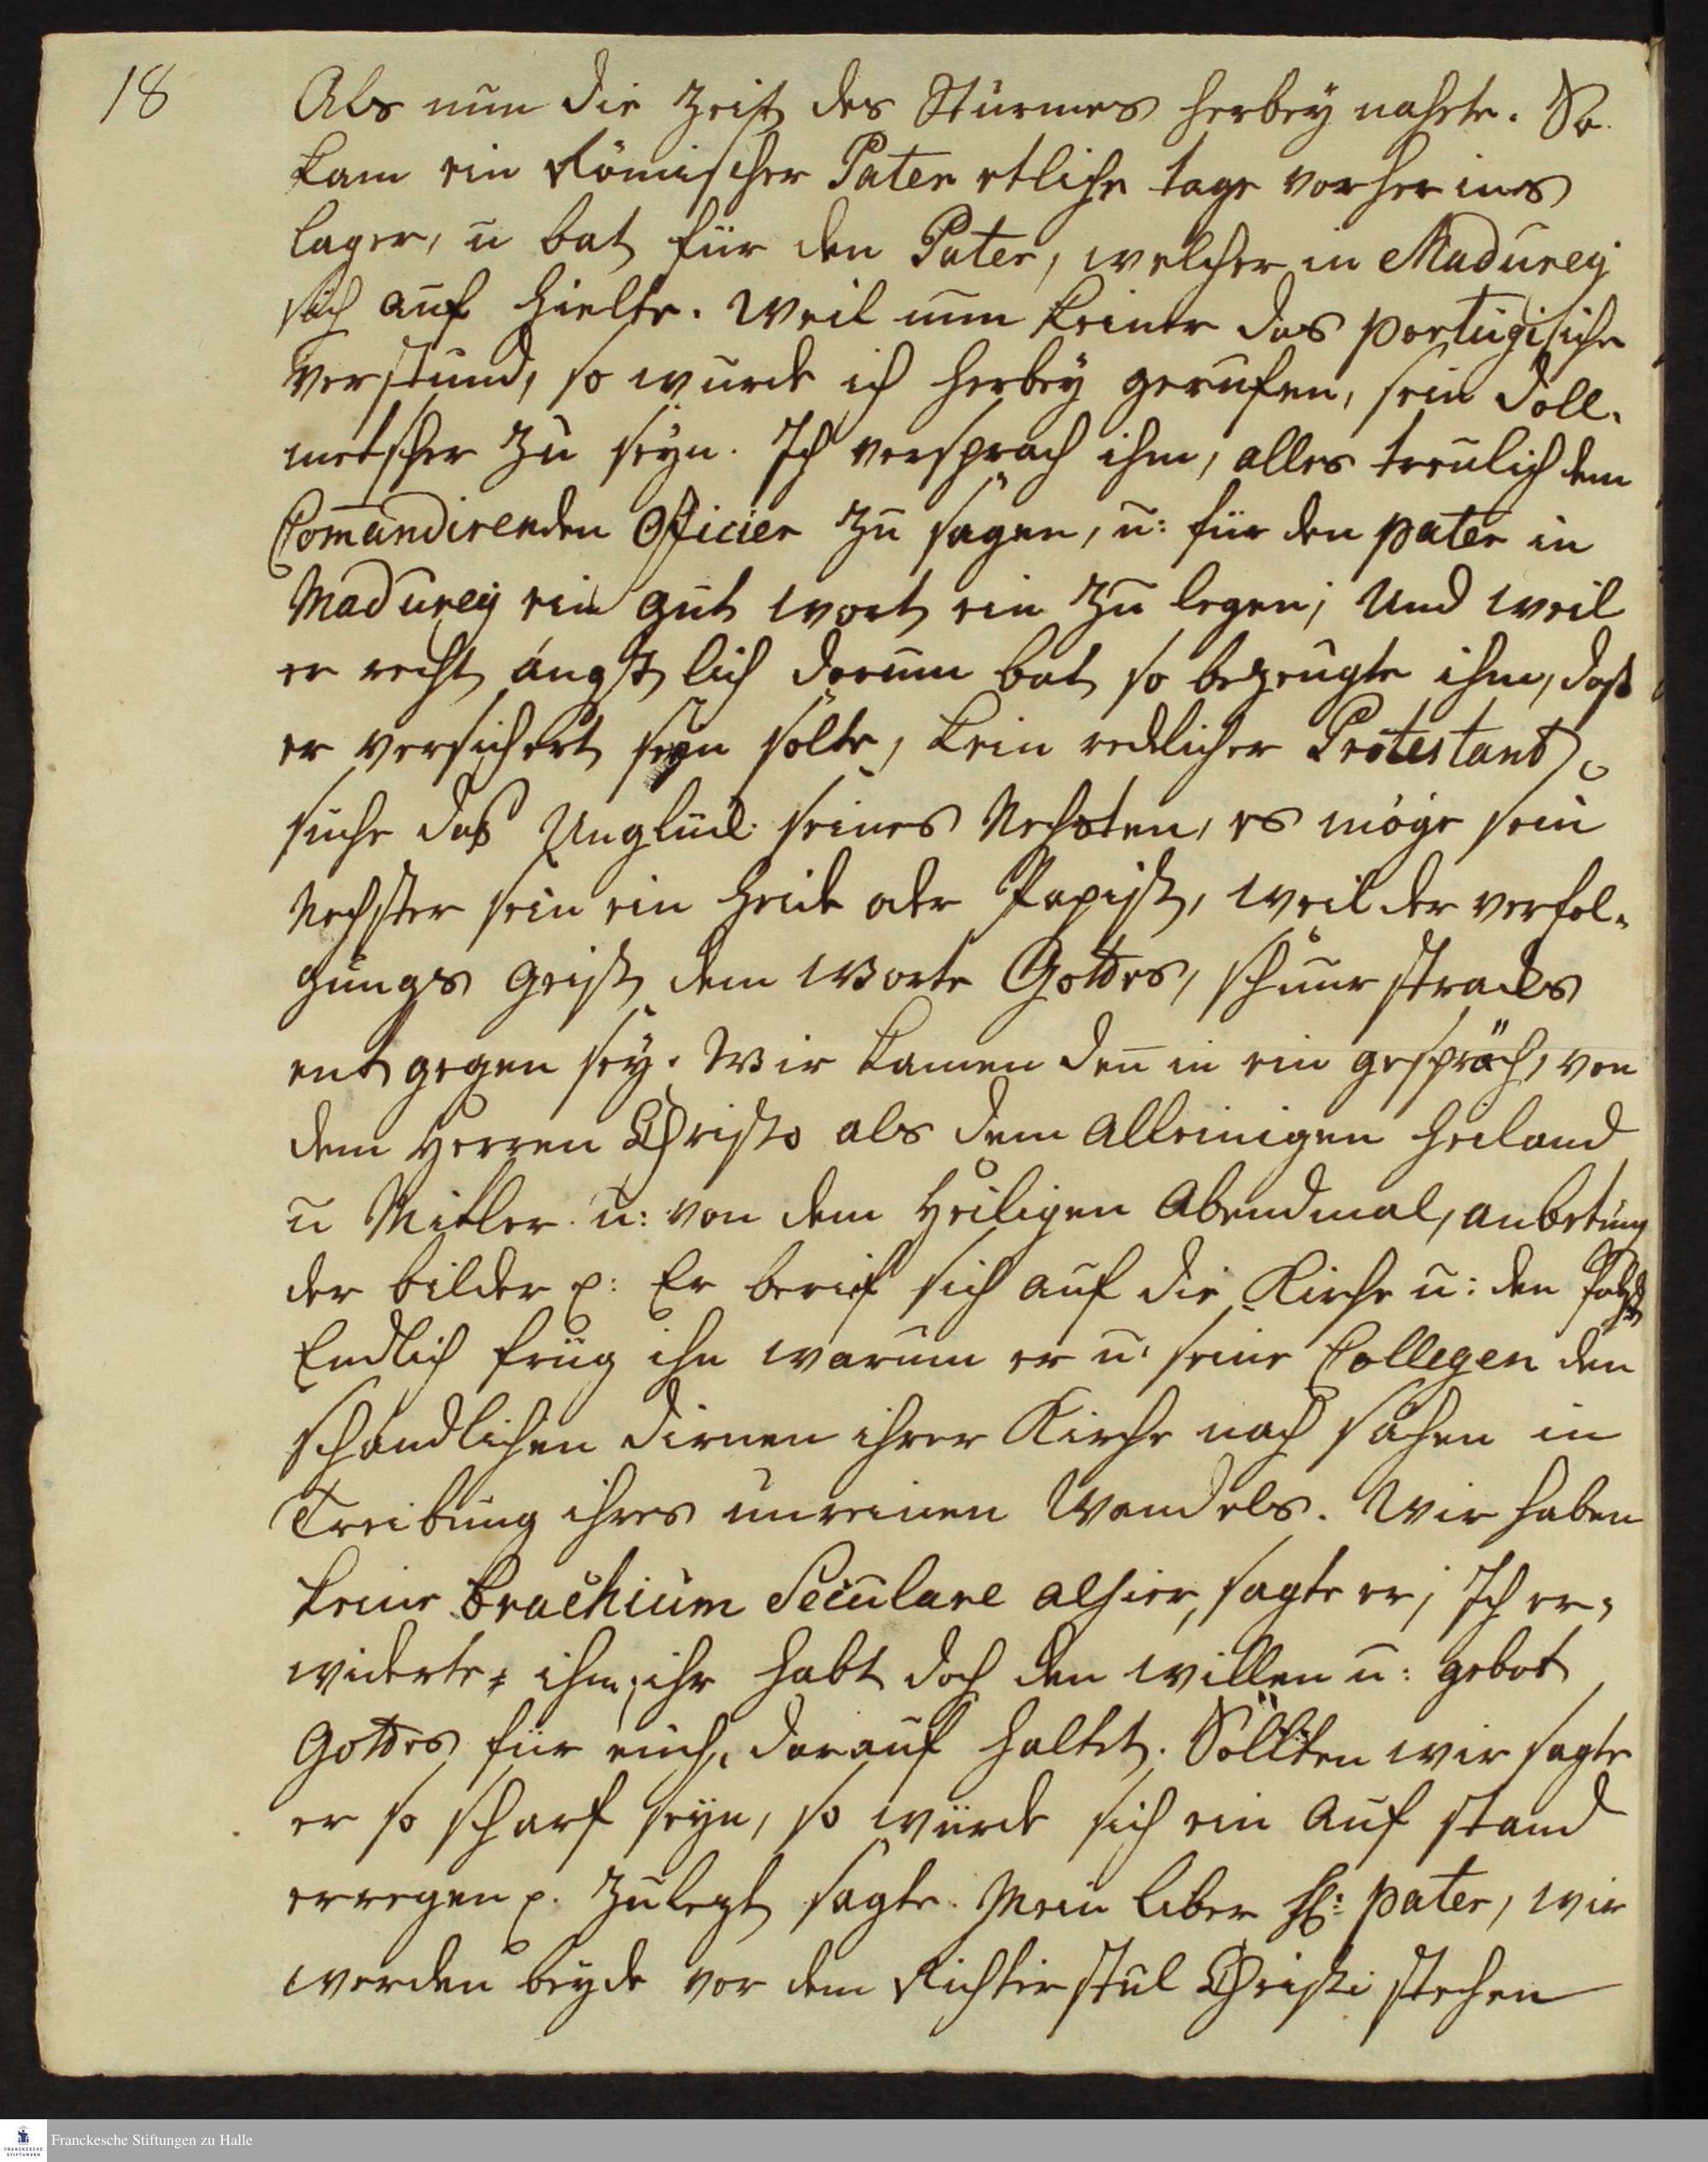 18
Als nun die Zeit des Sturmes herbey nahete. So
kam ein Römischer Pater etliche tage vorher ins
lager, u bat für den Pater, welcher in Madurey
sich auf hielte. Weil nun keiner das portugisiche
verstund, so wurde ich herbey gerufen, sein Doll-
metscher zu seyn. Ich versprach ihm, alles treulich dem
Com̄andirenden Officier zu sagen, u: für den pater in
Madurey ein gut wort ein zu legen; Und weil
er recht ängst lich darum bat so bezeugte ihm, daß
er versichert seyn solte, kein redlicher Protestant
suche das Unglück seines Nechsten, es möge sein
Nechster sein ein heide oder Papist, weil der verfol-
gungs Geist dem Worte Gottes, schnur stracks
ent gegen sey. Wir kamen den̄ in ein gespräch, von
dem Herren Christo als dem Alleinigen heiland
u Mitler u: von dem Heiligen Abendmal, anbetung
der bilder p: Er berief sich auf die Kirche u: den Pabst
Endlich frug ihn warum er u: seine Collegen den
schandlichen dirnen ihrer Kirche nach sähen in
Treibung ihres unreinen Wandels. Wir haben
keine Brachium Seculare alhier, sagte er; Ich er-
widerte ihm, ihr habt doch den willen u: gebot
Gottes für euch, darauf haltet. Sollten wir sagte
er so scharf seyn, so würde sich ein Auf stand
erregen p. Zulezt sagte. Mein liber H: pater, wir
werden beyde vor dem Richterstul Christi stehen
Franckesche Stiftungen zu Halle